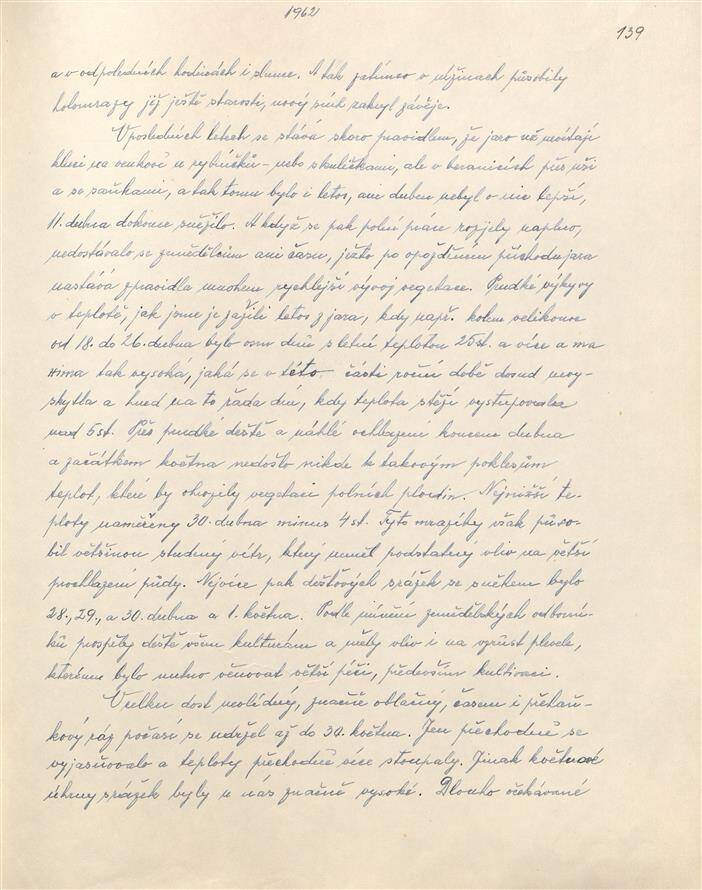 1962
139
a v odpoledních hodinách i slunce. A tak zatímco v nížinách působily
holomrazy již ještě starosti, nový sníh zakryl závěje.
V posledních letech se stává skoro pravidlem, že jaro už nevítají
kluci na venkově u rybníčků - nebo s kuličkami, ale v beranicích přes uši
a se saňkami, a tak tomu bylo i letos, ani duben nebyl o nic lepší,
11. dubna dokonce sněžilo. A když se pak polní práce rozjely naplno,
nedostávalo se zemědělcům ani času, ježto po opožděném příchodu jara
nastává zpravidla mnohem rychlejší vývoj vegetace. Prudké výkyvy
v teplotě, jak jsme je zažili letos z jara, kdy např. kolem velikonoc
od 18. do 26. dubna bylo osm dnů s letní teplotou 25 st. a více a ma
xima tak vysoká, jaká se v této části roční době dosud nevy-
skytla a hned na to řada dní, kdy teplota stěží vystupovala
nad 5 st. Přes prudké deště a náhlé ochlazení koncem dubna
a začátkem května nedošlo nikde k takovým poklesům
teplot, které by ohrozily vegetaci polních plodin. Nejnižší te-
ploty naměřeny 30. dubna minus 4 st. Tyto mrazíky však půso-
bil většinou studený vítr, který neměl podstatný vliv na větší
prochlazení půdy. Nejvíce pak dešťových srážek se sněhem bylo
28., 29., a 30. dubna a 1. května. Podle mínění zemědělských odborní-
ků prospěly deště všem kulturám a měly vliv i na vzrůst plevele,
kterému bylo nutno věnovat větší péči, především kultivaci.
Vcelku dost nevlídný, značně oblačný, časem i přeháň-
kový ráz počasí se udržel až do 30. května. Jen přechodně se
vyjasňovalo a teploty přechodně více stoupaly. Jinak květnové
úhrny srážek byly u nás značně vysoké. Dlouho očekávané